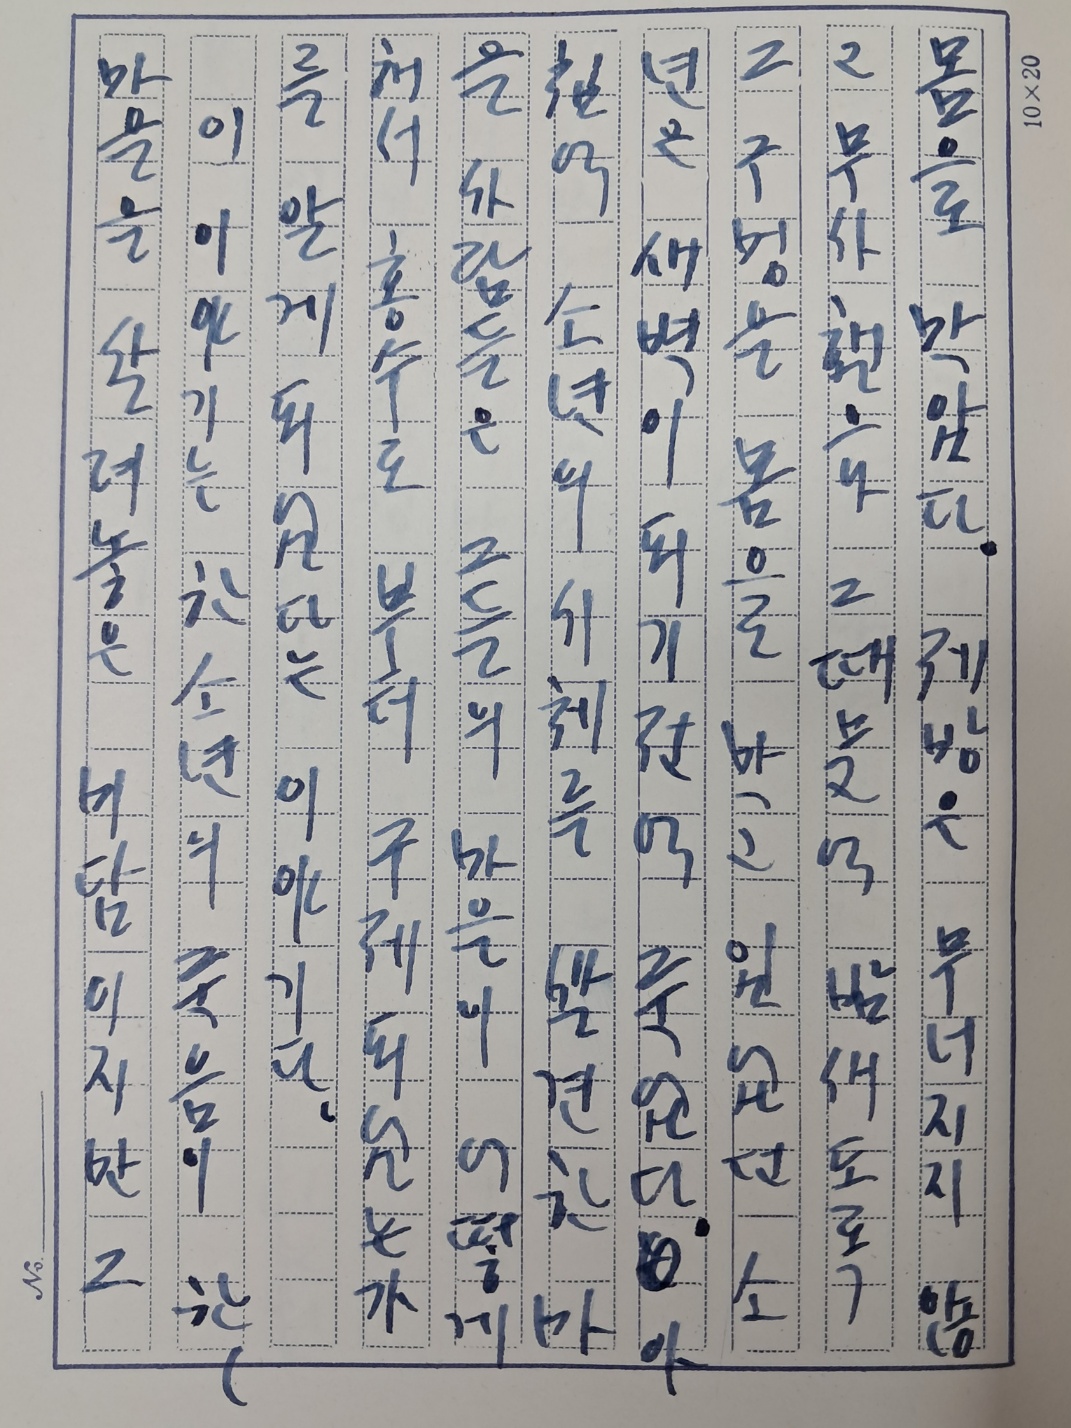 10×20
몸으로 막았다. 제방은 무너지지 않
고 무사했으나 그 때문에 밤새도록
그 구멍을 몸으로 막고 있었던 소
년은 새벽이 되기 전에 죽었다. 아
침에 소년의 시체를 발견한 마
을 사람들은 그들의 마을이 어떻게
해서 홍수로부터 구제되었는가
를 알게 되었다는 이야기다.
이 이야기는 한 소년의 죽음이 한
마을을 살려놓은 미담이지만 그
No.